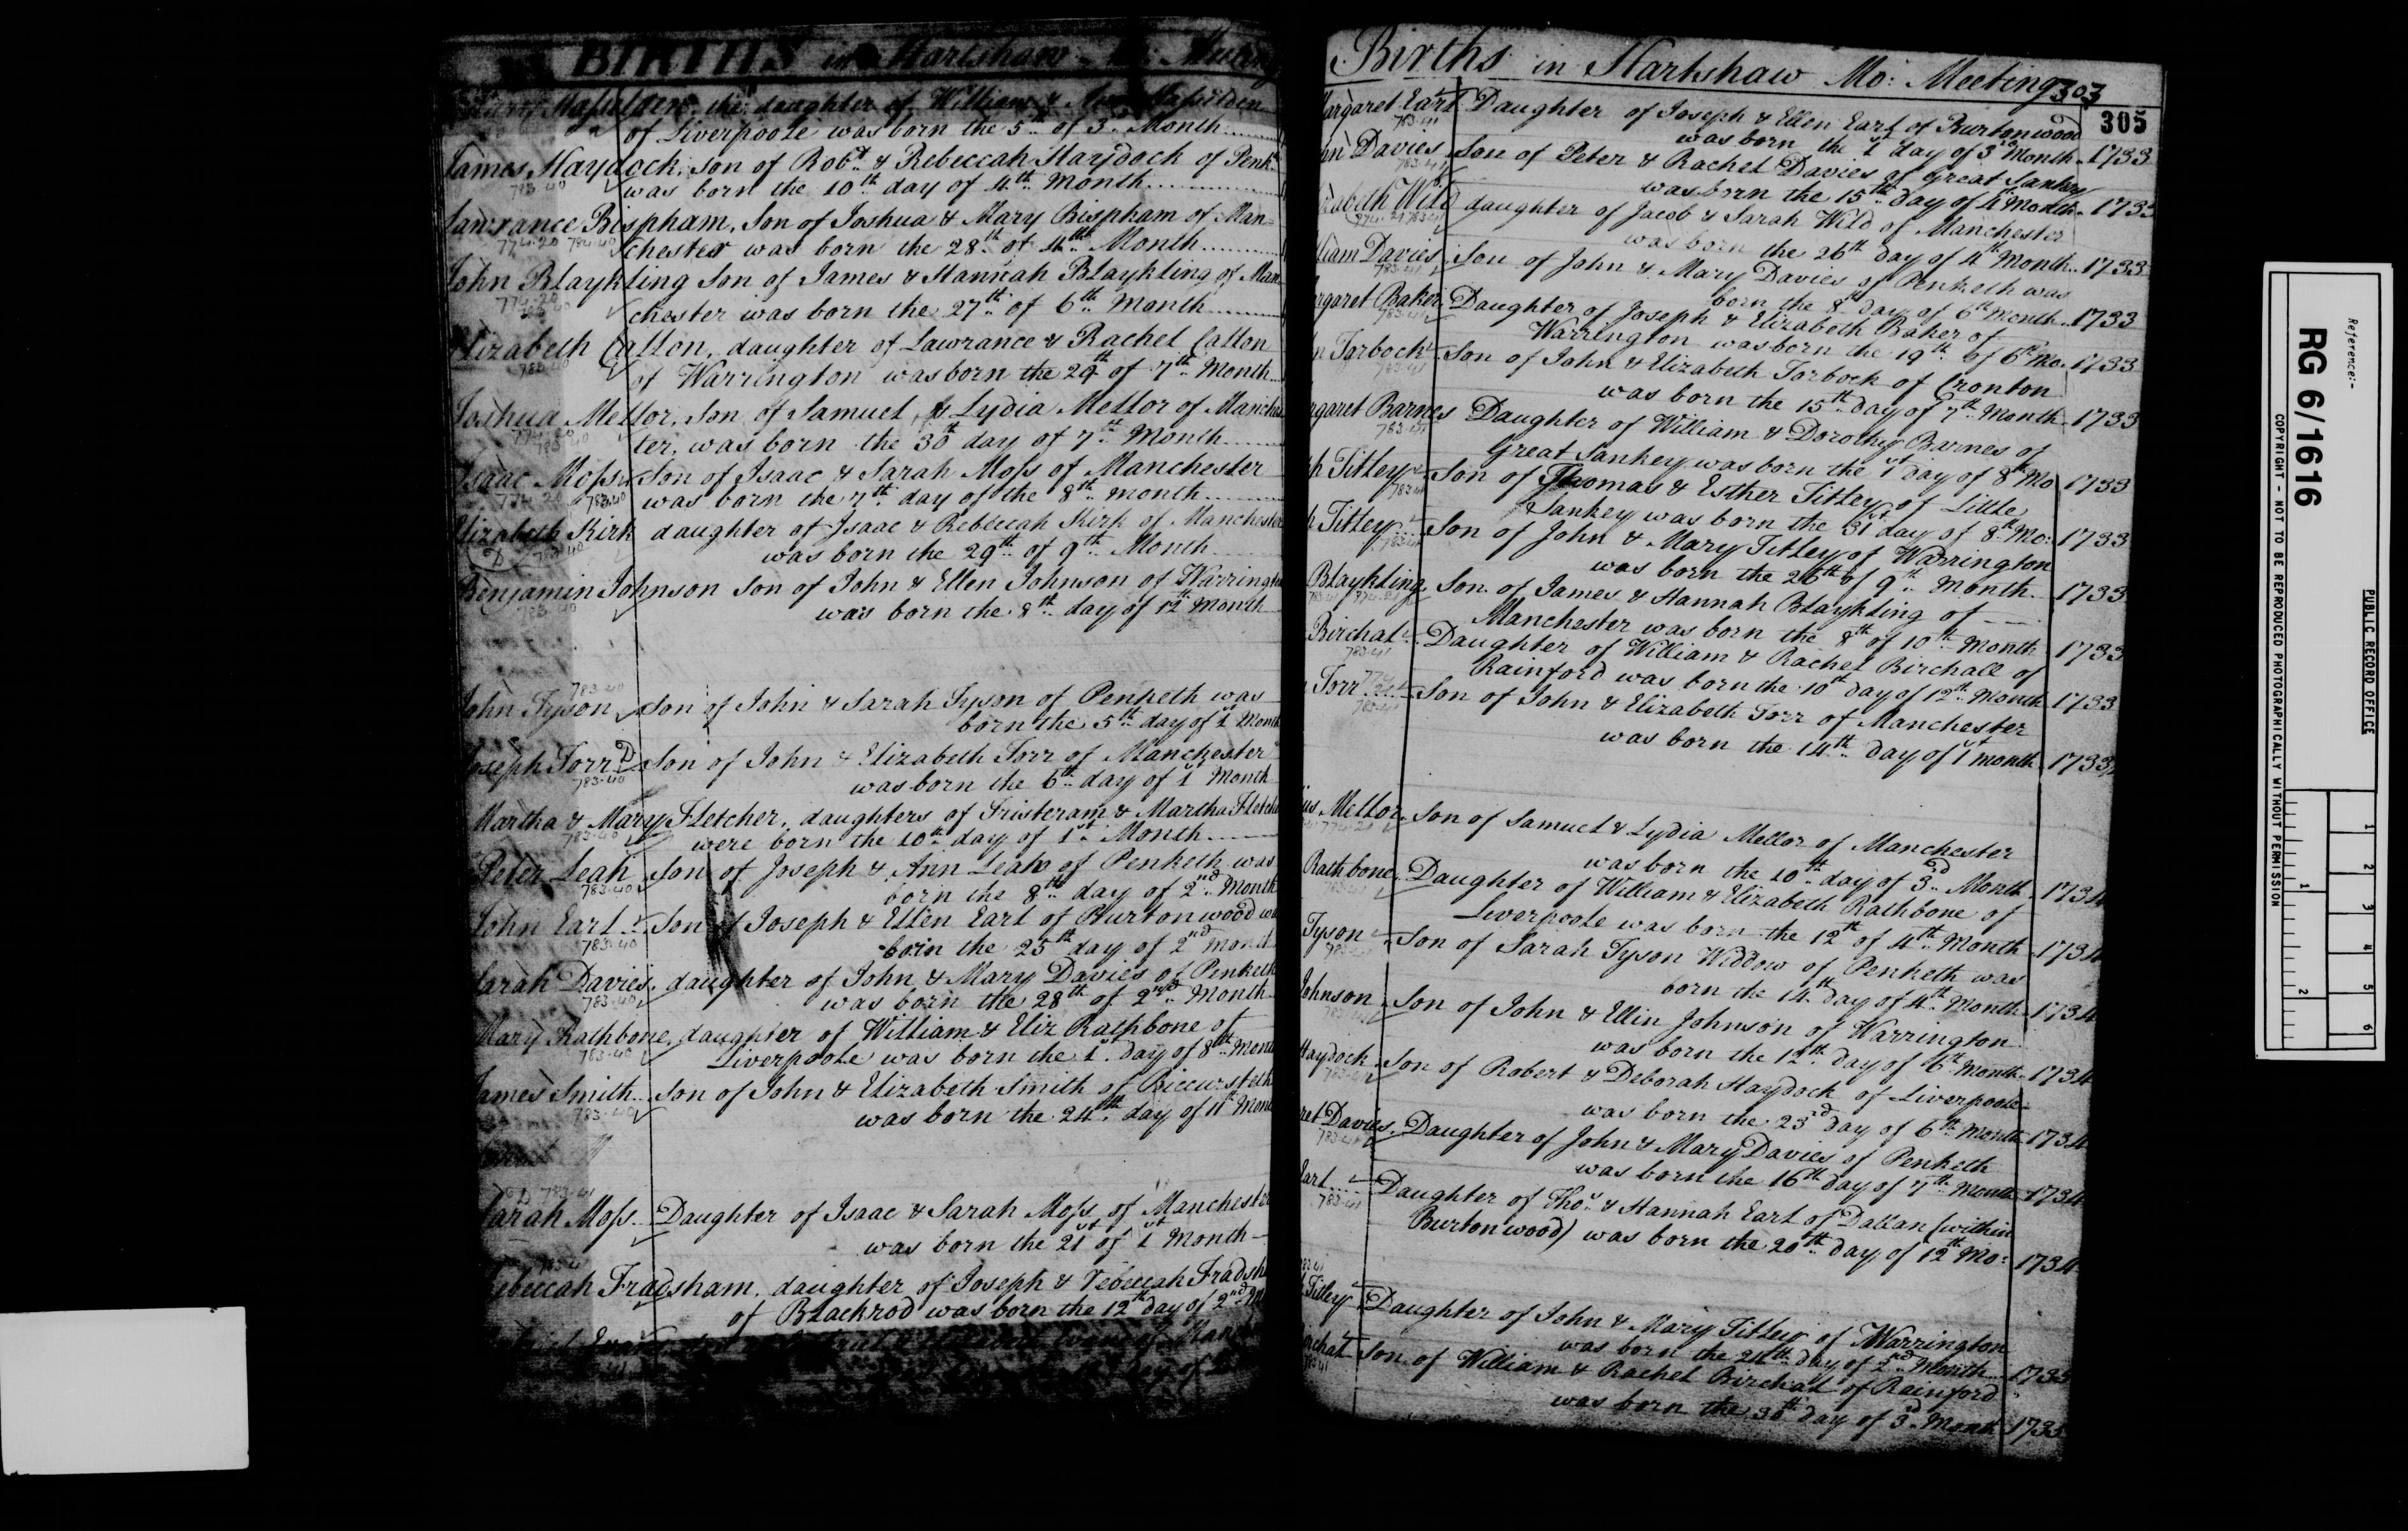 BIRTHS in Hartshaw Mo: Meeting
the daughter of William &
of Liverpoole was born the 5th of 3d Month
James Haydock, Son of Robt & Rebeccah Haydock of Penk
783-40
was born the 10th day of 4th Month
Lawrance Bispham, Son of Joshua & Mary Bispham of Man=
774-20 784-40
chester was born the 28th of 4th Month
John Blaykling Son of James & Hannah Blaykling of Man
774-20
chester was born the 27th of 6th Month
Elizabeth Catton, daughter of Lawrance & Rachel Catton
783-40
of Warrington was born the 29th of 7th Month
Joshua Mellor, Son of Samuel & Lydia Mellor of Manches
774-20
ter, was born the 30th day of 7th Month
Isaac Moss Son of Isaac & Sarah Moss of Manchester
774-20 783-40
was born the 7th day of the 8th month
Elizabeth Kirk daughter of Isaac & Rebeccah Kirk of Manchester
D 783-40
was born the 29th of 9th Month
Benjamin Johnson Son of John & Ellen Johnson of Warrington
783-40
was born the 8th day of 12th Month
783-40
John Tyson Son of John & Sarah Tyson of Penketh was
born the 5th day of 1st Month
Joseph Torr D Son of John & Elizabeth Torr of Manchester
783-40
was born the 6th day of 1st Month
Martha & Mary Fletcher, daughters of Tristeram & Martha Fletche
783-40
were born the 10th day of 1st Month
Peter Leah Son of Joseph & Ann Leah of Penketh was
783-40
born the 8th day of 2nd Month
John Earl Son of Joseph & Ellen Earl of Burtonwood wa
783-40
born the 25th day of 2nd Month
Sarah Davies, daughter of John & Mary Davies of Penketh
783-40
was born the 28th of 2nd Month
Mary Rathbone, daughter of William & Eliz Rathbone of
783-40
Liverpoole was born the 1st day of 8th Month
James Smith Son of John & Elizabeth Smith of Biccursteth
783-40
was born the 24th day of 11th Mont
D 783-41
Sarah Moss. Daughter of Isaac & Sarah Moss of Manchester
was born the 21st of 1st Month
Rebeccah Fradsham, daughter of Joseph & Rebeccah Fradsh
of Blackrod was born the 12th day of 2nd M
Births in Hartshaw Mo: Meeting 303
305
Margaret Earl Daughter of Joseph & Ellen Earl of Burtonwood
783-41
was born the 1st day of 3rd Month 1733
hn Davies Son of Peter & Rachel Davies of Great Sankey
783-41
was born the 15th day of 4th Month 1733
zabeth Wild daughter of Jacob & Sarah Wild of Manchester
774-21 783-41
was born the 26th day of 4th Month 1733
liam Davies Son of John & Mary Davies of Penketh was
783-41
born the 8th day of 6th Month 1733
rgaret Baker Daughter of Joseph & Elizabeth Baker of
783-41
Warrington was born the 19th of 6th Mo. 1733
n Torbock Son of John & Elizabeth Torbock of Cronton
783-41
was born the 15th day of 7th Month 1733
rgaret Barnes Daughter of William & Dorothy Barnes of
783-41
Great Sankey was born the 1st day of 8th Mo 1733
h Titley Son of Thomas & Esther Titley of Little
783-41
Sankey was born the 31st day of 8th Mo: 1733
h Titley Son of John & Mary Titley of Warrington
783-41
was born the 26th of 9th Month 1733
Blaykling Son of James & Hannah Blaykling of
Manchester was born the 8th of 10th Month 1733
Birchal Daughter of William & Rachel Birchall of
783-41
Rainford was born the 10th day of 12th Month 1733
Torr Son of John & Elizabeth Torr of Manchester
783-41
was born the 14th day of 1st month 1733/
us Mellor, Son of Samuel & Lydia Mellor of Manchester
was born the 10th day of 3d Month 1734
Rathbone, Daughter of William & Elizabeth Rathbone of
Liverpoole was born the 12th of 4th Month 1734
Tyson Son of Sarah Tyson Widdow of Penketh was
born the 14th day of 4th Month 1734
Johnson Son of John & Ellin Johnson of Warrington
was born the 12th day of 6th Month 1734
Haydock Son of Robert & Deborah Haydock of Liverpoole
was born the 23rd day of 6th Month 1734
ret Davies, Daughter of John & Mary Davies of Penketh
783-41
was born the 16th day of 7th Month 1734
Earl Daughter of Thos & Hannah Earl of Dallan (within
783-41
Burtonwood) was born the 20th day of 12th Mo: 1734
Titley Daughter of John & Mary Titley of Warrington
was born the 24th day of 2nd Month 1735
rchal Son of William & Rachel Birchal of Rainford
was born the 30th day of 3d Month 1735
Reference:-
RG 6/1616
PUBLIC RECORD OFFICE
COPYRIGHT - NOT TO BE REPRODUCED PHOTOGRAPHICALLY WITHOUT PERMISSION
1 2 3 4 5 6
1 2